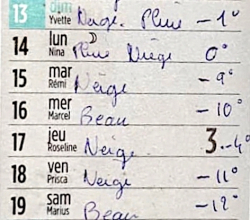 13 dim Yvette Neige. Pluie -1°
14 lun Nina Pluie Niège 0°
15 mar Rémi Neige -9°
16 mer Marcel Beau -10°
17 jeu Roseline Neige. 3 -4°
18 ven Prisca Neige -11°
19 sam Marius Beau -12°